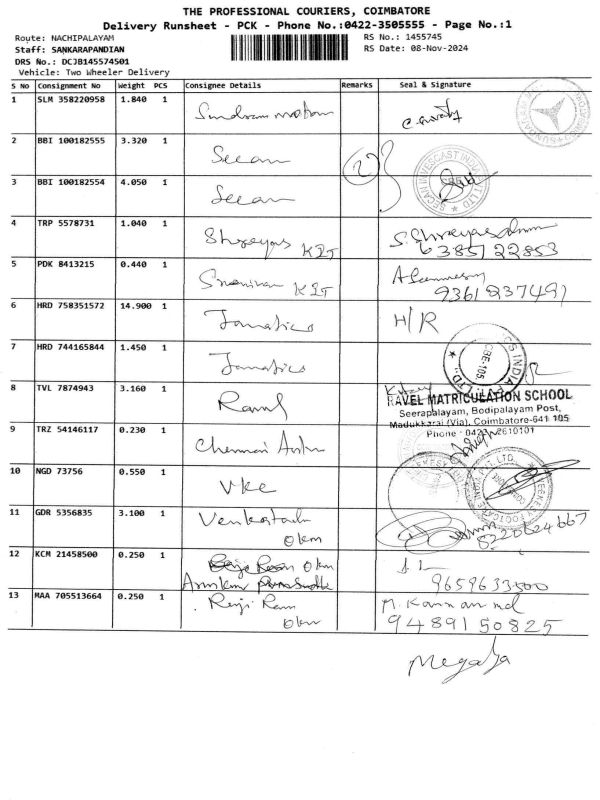 THE PROFESSIONAL COURIERS, COIMBATORE
Delivery Runsheet - PCK - Phone No.:0422-3505555 - Page No.:1
Route: NACHIPALAYAM
RS No.: 1455745
Staff: SANKARAPANDIAN
RS Date: 08-Nov-2024
DRS No.: DCJB145574501
Vehicle: Two Wheeler Delivery
S No Consignment No Weight PCS Consignee Details Remarks Seal & Signature
1 SLM 358220958 1.840 1 Sundram motors
2 BBI 100182555 3.320 1 Secan
3 BBI 100182554 4.050 1 Secan
4 TRP 5578731 1.040 1 Shreyas KIT
6385122853
5 PDK 8413215 0.440 1 KIT
9361837491
6 HRD 758351572 14.900 1 Fanatics H/R
7 HRD 744165844 1.450 1 Fanatics
8 TVL 7874943 3.160 1 Ravel
RAVEL MATRICULATION SCHOOL
Seerapalayam, Bodipalayam Post,
Madukkarai (Via), Coimbatore-641 105
Phone - 0422-2610101
9 TRZ 54146117 0.230 1 Chennai
10 NGD 73756 0.550 1 VKC
11 GDR 5356835 3.100 1
Okm 8220624667
12 KCM 21458500 0.250 1 Okm
9659633500
13 MAA 705513664 0.250 1 Reji Ram
Okm 9489150825